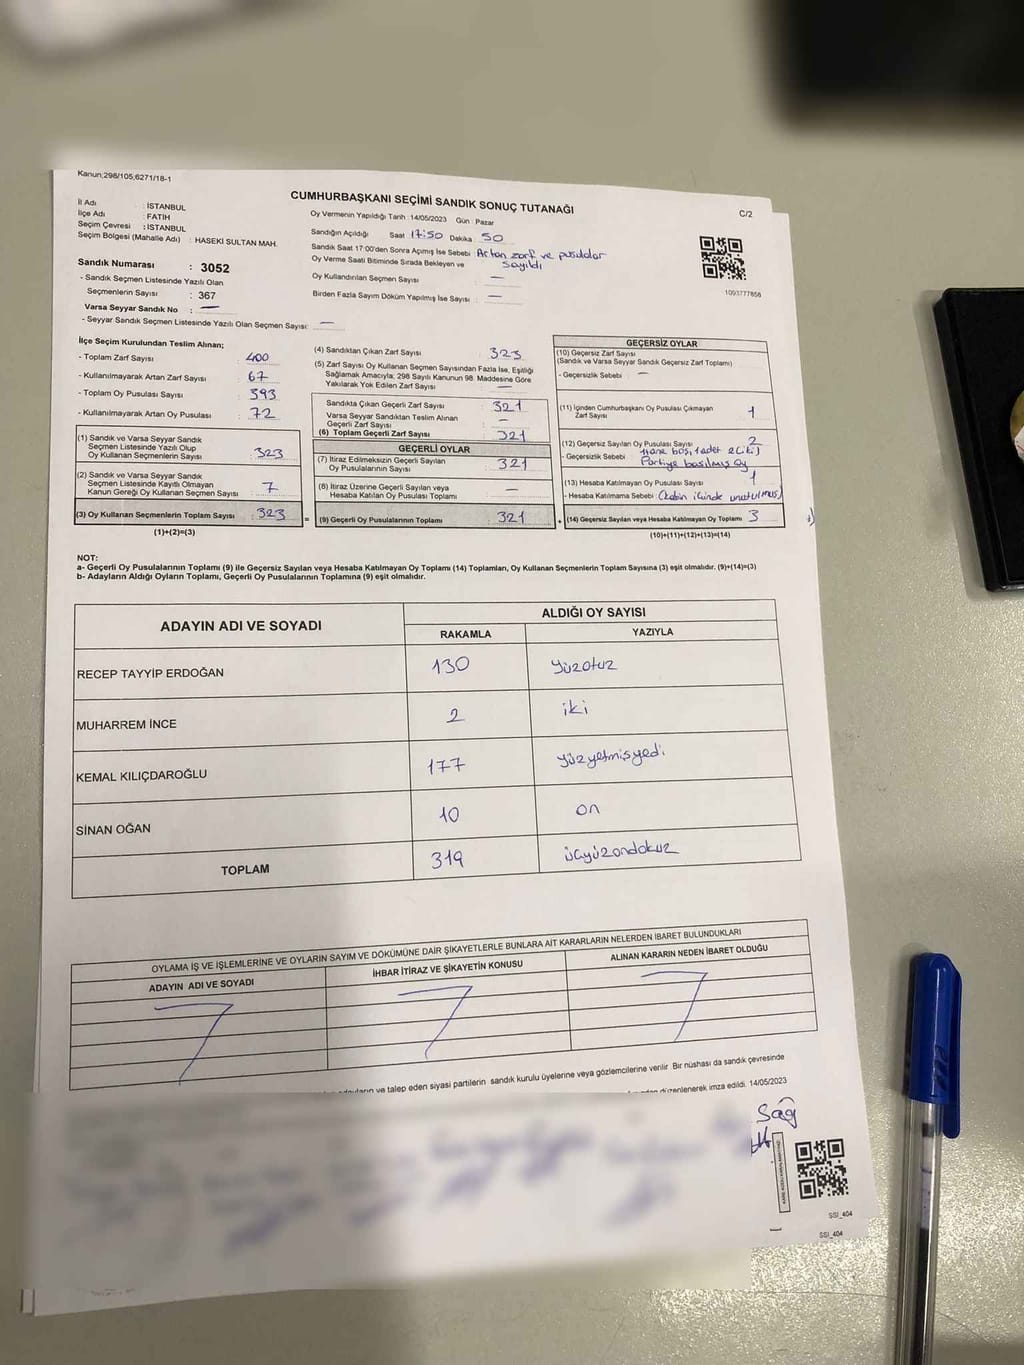 Kanun;298/105,6271/18-1
CUMHURBAŞKANI SEÇİMİ SANDIK SONUÇ TUTANAĞI
C/2
İl Adı : İSTANBUL
İlçe Adı : FATİH
Seçim Çevresi : İSTANBUL
Seçim Bölgesi (Mahalle Adı) : HASEKİ SULTAN MAH.
Sandık Numarası : 3052
- Sandık Seçmen Listesinde Yazılı Olan
Seçmenlerin Sayısı : 367
Varsa Seyyar Sandık No : —
- Seyyar Sandık Seçmen Listesinde Yazılı Olan Seçmen Sayısı: —
Oy Vermenin Yapıldığı Tarih :14/05/2023 Gün : Pazar
Sandığın Açıldığı Saat 17:50 Dakika 50
Sandık Saat 17:00'den Sonra Açımış İse Sebebi Artan zarf ve pusulalar
Oy Verme Saati Bitiminde Sırada Bekleyen ve sayıldı
Oy Kullandırılan Seçmen Sayısı : —
Birden Fazla Sayım Döküm Yapılmış İse Sayısı : —
1093777858
İlçe Seçim Kurulundan Teslim Alınan;
- Toplam Zarf Sayısı : 400
- Kullanılmayarak Artan Zarf Sayısı : 67
- Toplam Oy Pusulası Sayısı : 393
- Kullanılmayarak Artan Oy Pusulası : 72
(1) Sandık ve Varsa Seyyar Sandık
Seçmen Listesinde Yazılı Olup
Oy Kullanan Seçmenlerin Sayısı : 323
(2) Sandık ve Varsa Seyyar Sandık
Seçmen Listesinde Kayıtlı Olmayan
Kanun Gereği Oy Kullanan Seçmen Sayısı : 7
(3) Oy Kullanan Seçmenlerin Toplam Sayısı : 323
(1)+(2)=(3)
(4) Sandıktan Çıkan Zarf Sayısı : 323
(5) Zarf Sayısı Oy Kullanan Seçmen Sayısından Fazla İse, Eşitliği
Sağlamak Amacıyla; 298 Sayılı Kanunun 98. Maddesine Göre
Yakılarak Yok Edilen Zarf Sayısı : —
Sandıkta Çıkan Geçerli Zarf Sayısı : 321
Varsa Seyyar Sandıktan Teslim Alınan
Geçerli Zarf Sayısı : —
(6) Toplam Geçerli Zarf Sayısı : 321
GEÇERLİ OYLAR
(7) İtiraz Edilmeksizin Geçerli Sayılan
Oy Pusulalarının Sayısı : 321
(8) İtiraz Üzerine Geçerli Sayılan veya
Hesaba Katılan Oy Pusulası Toplamı : —
= (9) Geçerli Oy Pusulalarının Toplamı : 321
GEÇERSİZ OYLAR
(10) Geçersiz Zarf Sayısı
(Sandık ve Varsa Seyyar Sandık Geçersiz Zarf Toplamı)
- Geçersizlik Sebebi : —
(11) İçinden Cumhurbaşkanı Oy Pusulası Çıkmayan
Zarf Sayısı : 1
(12) Geçersiz Sayılan Oy Pusulası Sayısı : 2
- Geçersizlik Sebebi : 1 tane boş, 1 adet 2 (iki)
Partiye basılmış oy
(13) Hesaba Katılmayan Oy Pusulası Sayısı : 1
- Hesaba Katılmama Sebebi : (kabin içinde unutulmuş)
+ (14) Geçersiz Sayılan veya Hesaba Katılmayan Oy Toplamı : 3
(10)+(11)+(12)+(13)=(14)
NOT:
a- Geçerli Oy Pusulalarının Toplamı (9) ile Geçersiz Sayılan veya Hesaba Katılmayan Oy Toplamı (14) Toplamları, Oy Kullanan Seçmenlerin Toplam Sayısına (3) eşit olmalıdır. (9)+(14)=(3)
b- Adayların Aldığı Oyların Toplamı, Geçerli Oy Pusulalarının Toplamına (9) eşit olmalıdır.
ADAYIN ADI VE SOYADI
ALDIĞI OY SAYISI
RAKAMLA YAZIYLA
RECEP TAYYİP ERDOĞAN 130 yüzotuz
MUHARREM İNCE 2 iki
KEMAL KILIÇDAROĞLU 177 yüzyetmişyedi
SİNAN OĞAN 10 on
TOPLAM 319 üçyüzondokuz
OYLAMA İŞ VE İŞLEMLERİNE VE OYLARIN SAYIM VE DÖKÜMÜNE DAİR ŞİKAYETLERLE BUNLARA AİT KARARLARIN NELERDEN İBARET BULUNDUKLARI
ADAYIN ADI VE SOYADI
İHBAR İTİRAZ VE ŞİKAYETİN KONUSU
ALINAN KARARIN NEDEN İBARET OLDUĞU
ve talep eden siyasi partilerin sandık kurulu üyelerine veya gözlemcilerine verilir. Bir nüshası da sandık çevresinde
düzenlenerek imza edildi. 14/05/2023
Sağ
SSI_404
SSI_404